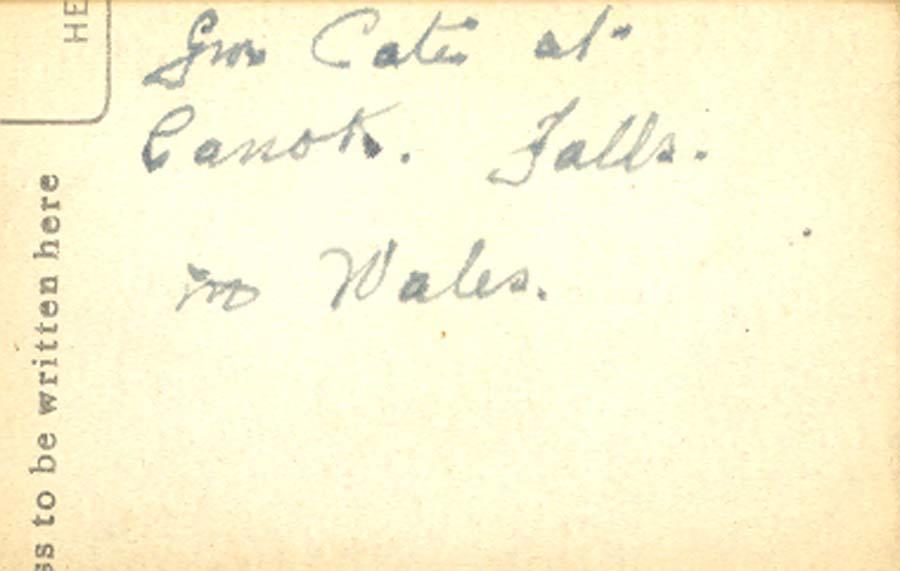 HE
Gwr Cate at
Canok. Falls.
in Wales.
ss to be written here